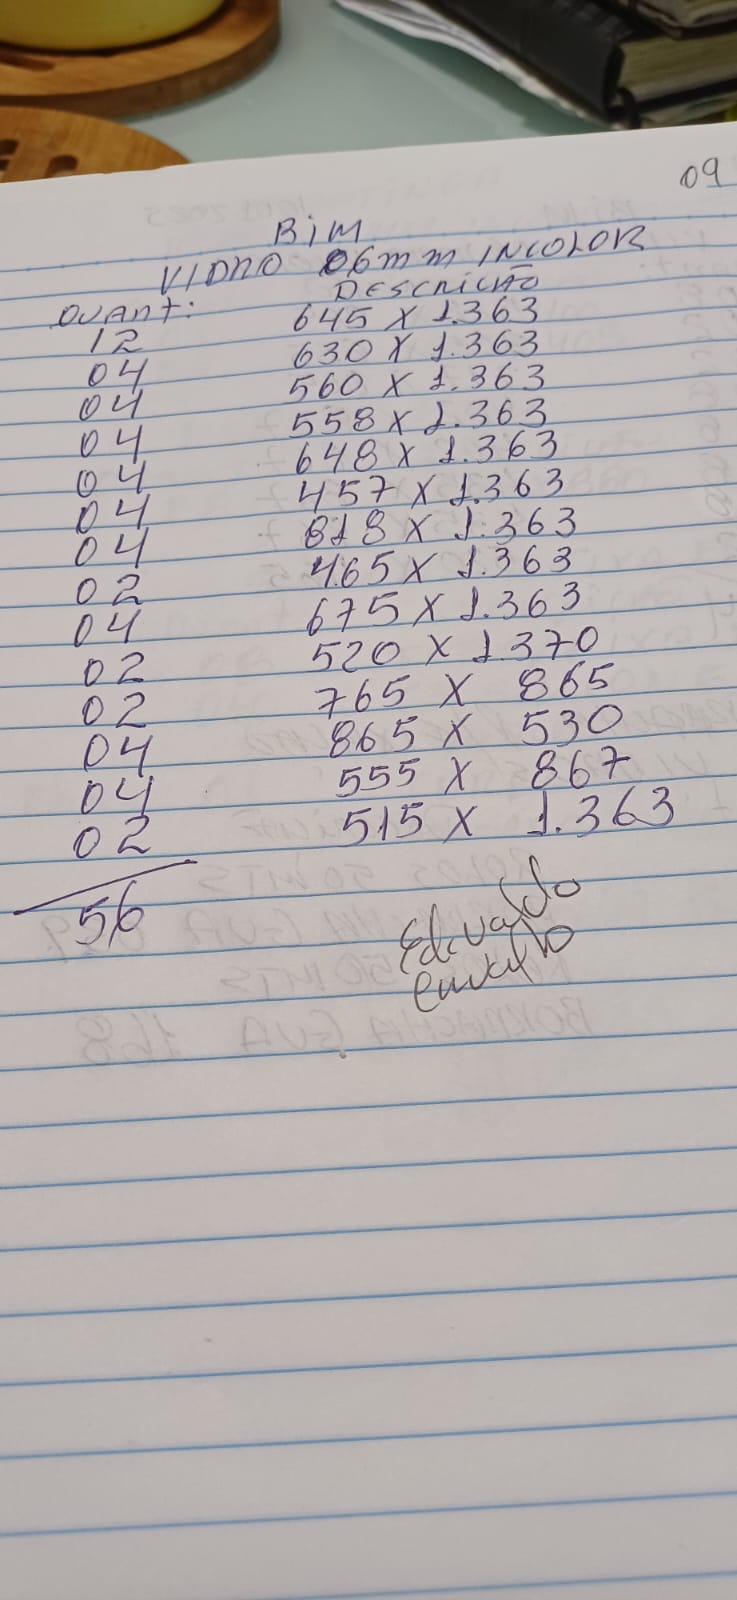 09
BIM
VIDRO 06mm INCOLOR
QUANT: DESCRIÇÃO
12 645 X 1.363
04 630 X 1.363
04 560 X 1.363
04 558 X 1.363
04 648 X 1.363
04 457 X 1.363
04 818 X 1.363
02 465 X 1.363
04 675 X 1.363
02 520 X 1.370
02 765 X 865
04 865 X 530
04 555 X 867
02 515 X 1.363
56
Edivaldo